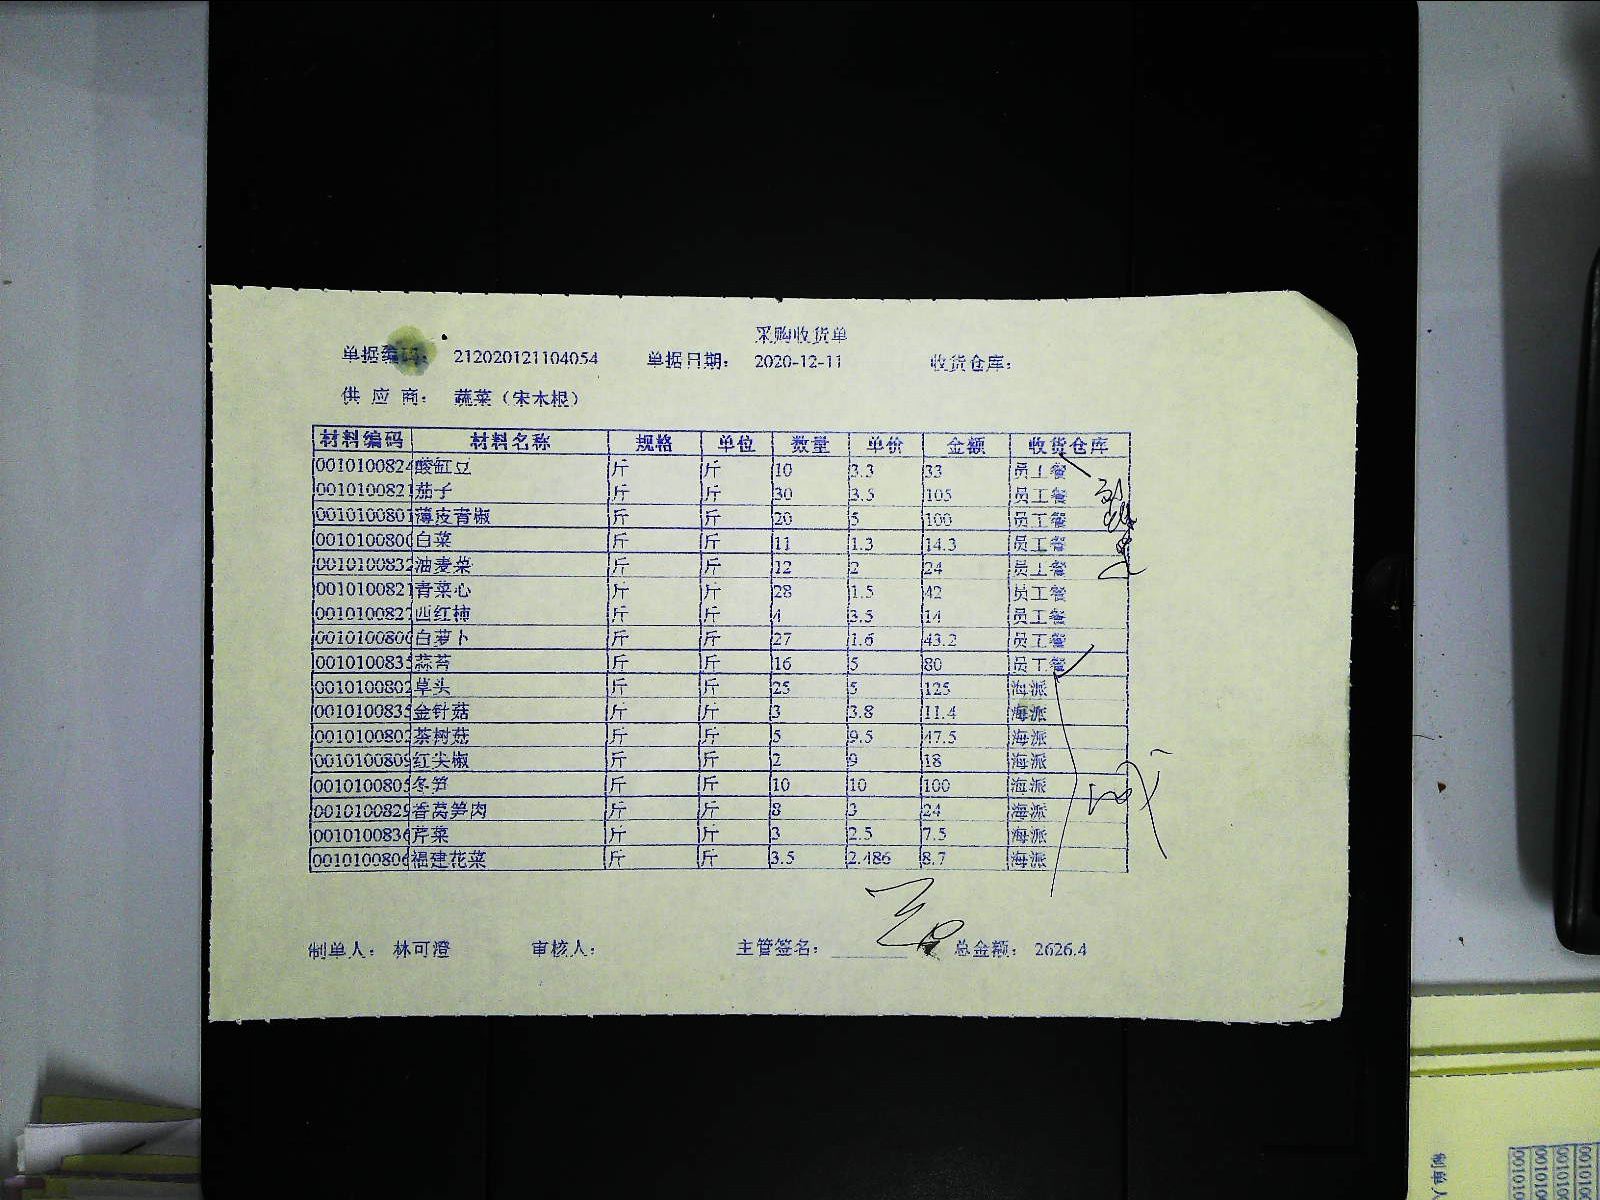 采购收货单
单据编码： 212020121104054 单据日期： 2020-12-11 收货仓库：
供 应 商： 蔬菜（宋木根）
材料编码 材料名称 规格 单位 数量 单价 金额 收货仓库
0010100824 酸缸豆 斤 斤 10 3.3 33 员工餐
0010100821 茄子 斤 斤 30 3.5 105 员工餐
0010100801 薄皮青椒 斤 斤 20 5 100 员工餐
001010080 白菜 斤 斤 11 1.3 14.3 员工餐
0010100832 油麦菜 斤 斤 12 2 24 员工餐
0010100821 青菜心 斤 斤 28 1.5 42 员工餐
0010100827 西红柿 斤 斤 4 3.5 14 员工餐
001010080 白萝卜 斤 斤 27 1.6 43.2 员工餐
0010100835 蒜苔 斤 斤 16 5 80 员工餐
0010100802 草头 斤 斤 25 5 125 海派
0010100835 金针菇 斤 斤 3 3.8 11.4 海派
0010100802 茶树菇 斤 斤 5 9.5 47.5 海派
0010100809 红尖椒 斤 斤 2 9 18 海派
0010100805 冬笋 斤 斤 10 10 100 海派
0010100829 香莴笋肉 斤 斤 8 3 24 海派
0010100836 芹菜 斤 斤 3 2.5 7.5 海派
0010100806 福建花菜 斤 斤 3.5 2.486 8.7 海派
制单人： 林可澄 审核人： 主管签名： 总金额： 2626.4
制单人